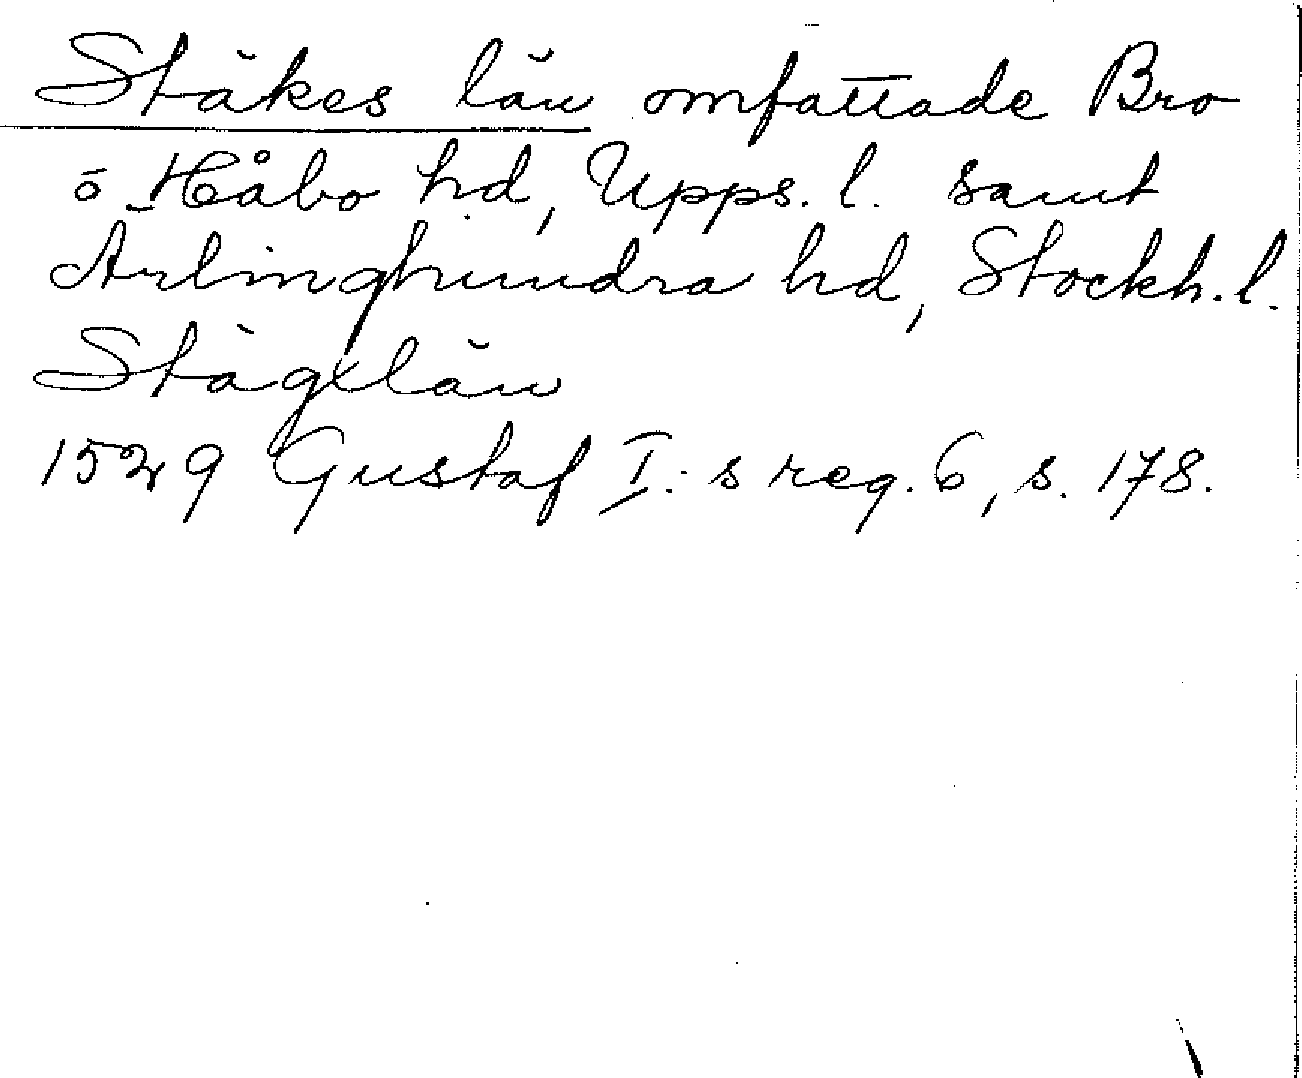 Stäkes län omfattade Bro
o Håbo hd, Upps. l. samt
Ärlinghundra hd, Stockh. l.
Stägxlän
1529 Gustaf I:s reg. 6, s. 178.